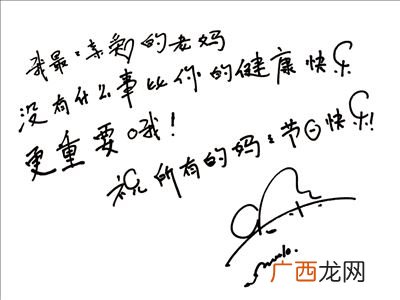 我最:亲爱的老妈
没有什么事比你的健康快乐
更重要哦!
祝所有的妈:节日快乐!
广西龙网